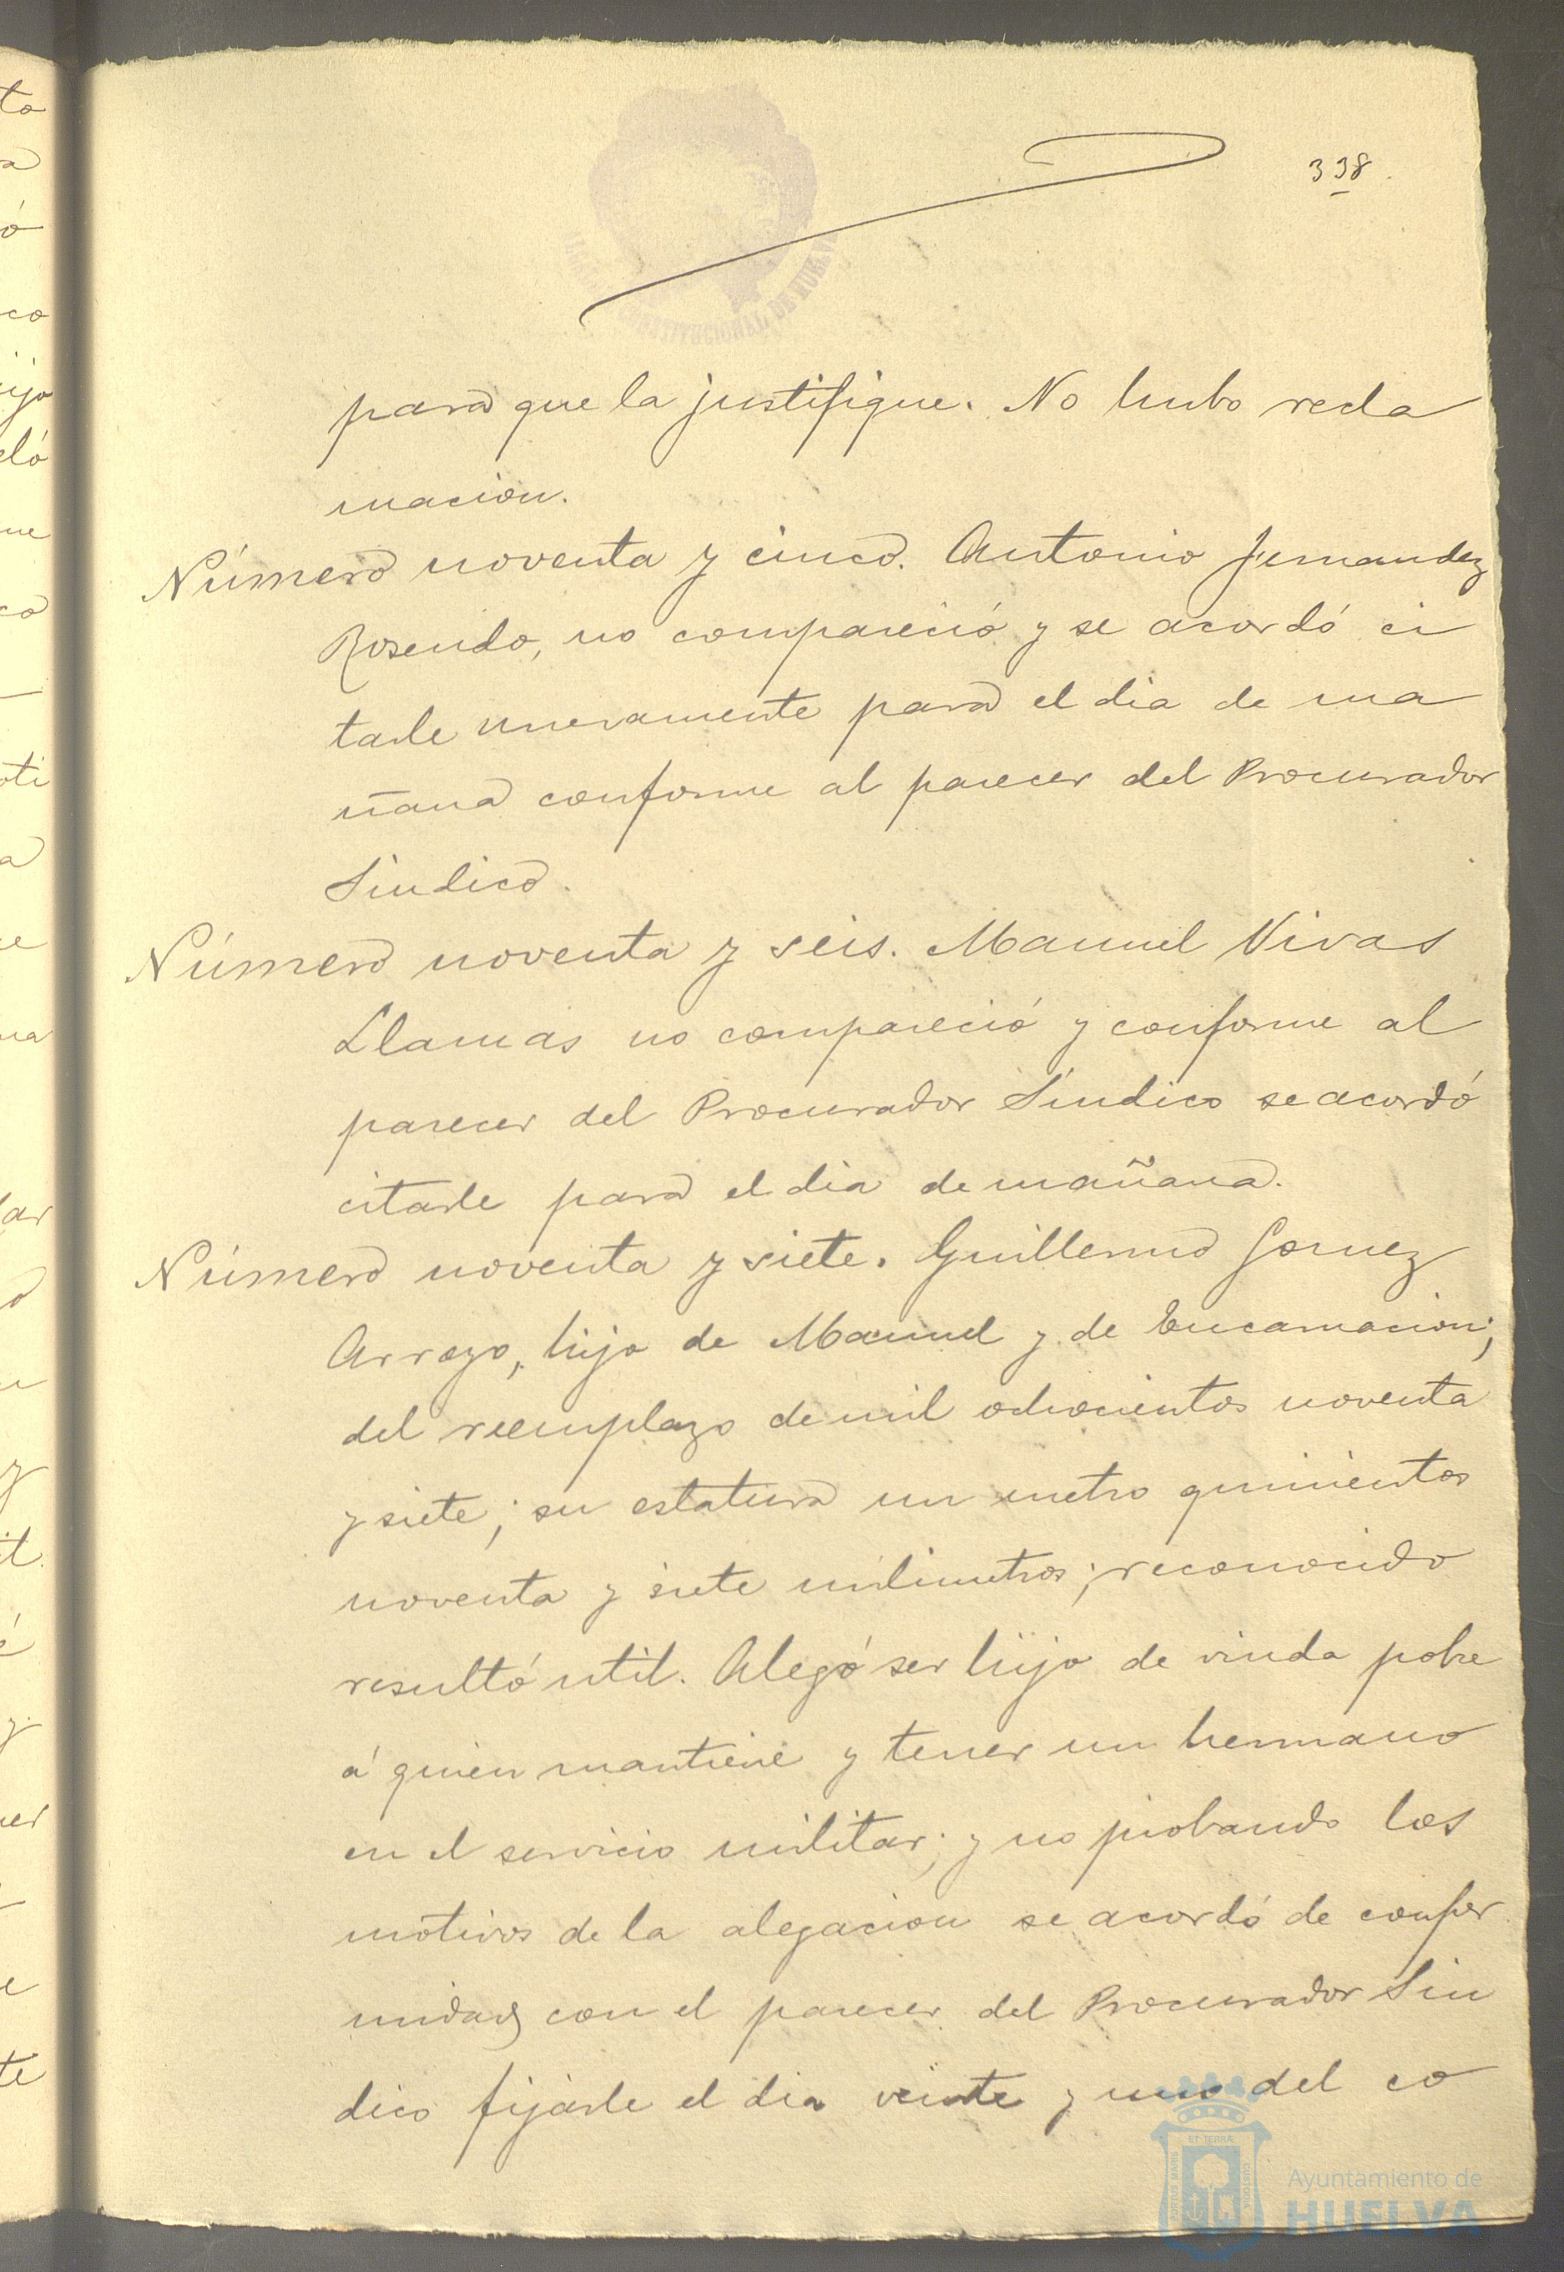 338.
para que la justifique. No hubo recla
macion.
Número noventa y cinco. Antonio Fernandez
Rosendo, no compareció y se acordó ci
tarle nuevamente para el dia de ma
ñana conforme al parecer del Procurador
Sindico.
Número noventa y seis. Manuel Vivas
Llamas no compareció y conforme al
parecer del Procurador Síndico se acordó
citarle para el dia de mañana.
Número noventa y siete. Guillermo Gomez
Arroyo, hijo de Manuel y de Encarnacion;
del reemplazo de mil ochocientos noventa
y siete; su estatura un metro quinientos
noventa y siete milimetros; reconocido
resultó util. Alegó ser hijo de viuda pobre
á quien mantiene y tener un hermano
en el servicio militar; y no probando los
motivos de la alegacion se acordó de confor
midad con el parecer del Procurador Sin
dico fijarle el dia veinte y uno del co
CONSTITUCIONAL DE HUELVA
Ayuntamiento de
HUELVA